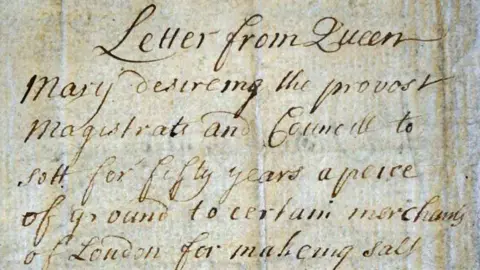 Letter from Queen
Mary desireing the provost
Magistrats and Councill to
sett for fifty years a peice
of ground to certain merchants
of London for makeing salt